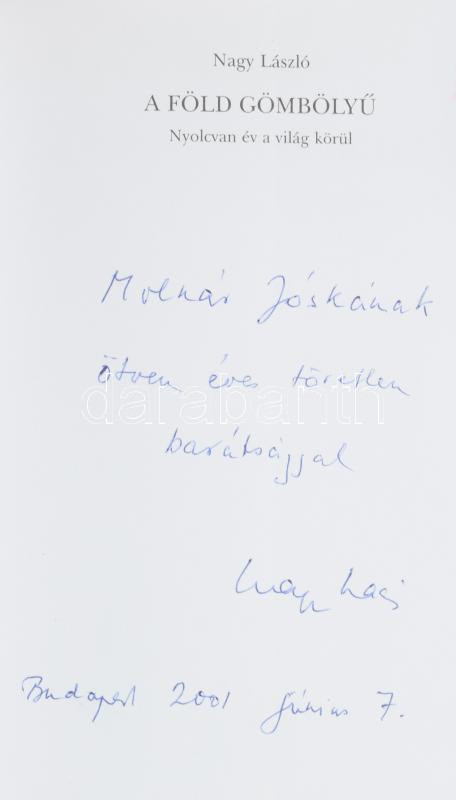 Nagy László
A FÖLD GÖMBÖLYŰ
Nyolcvan év a világ körül
Molnár Jóskának
ötven éves töretlen
darabanth
barátsággal
Nagy Laci
Budapest 2001 június 7.